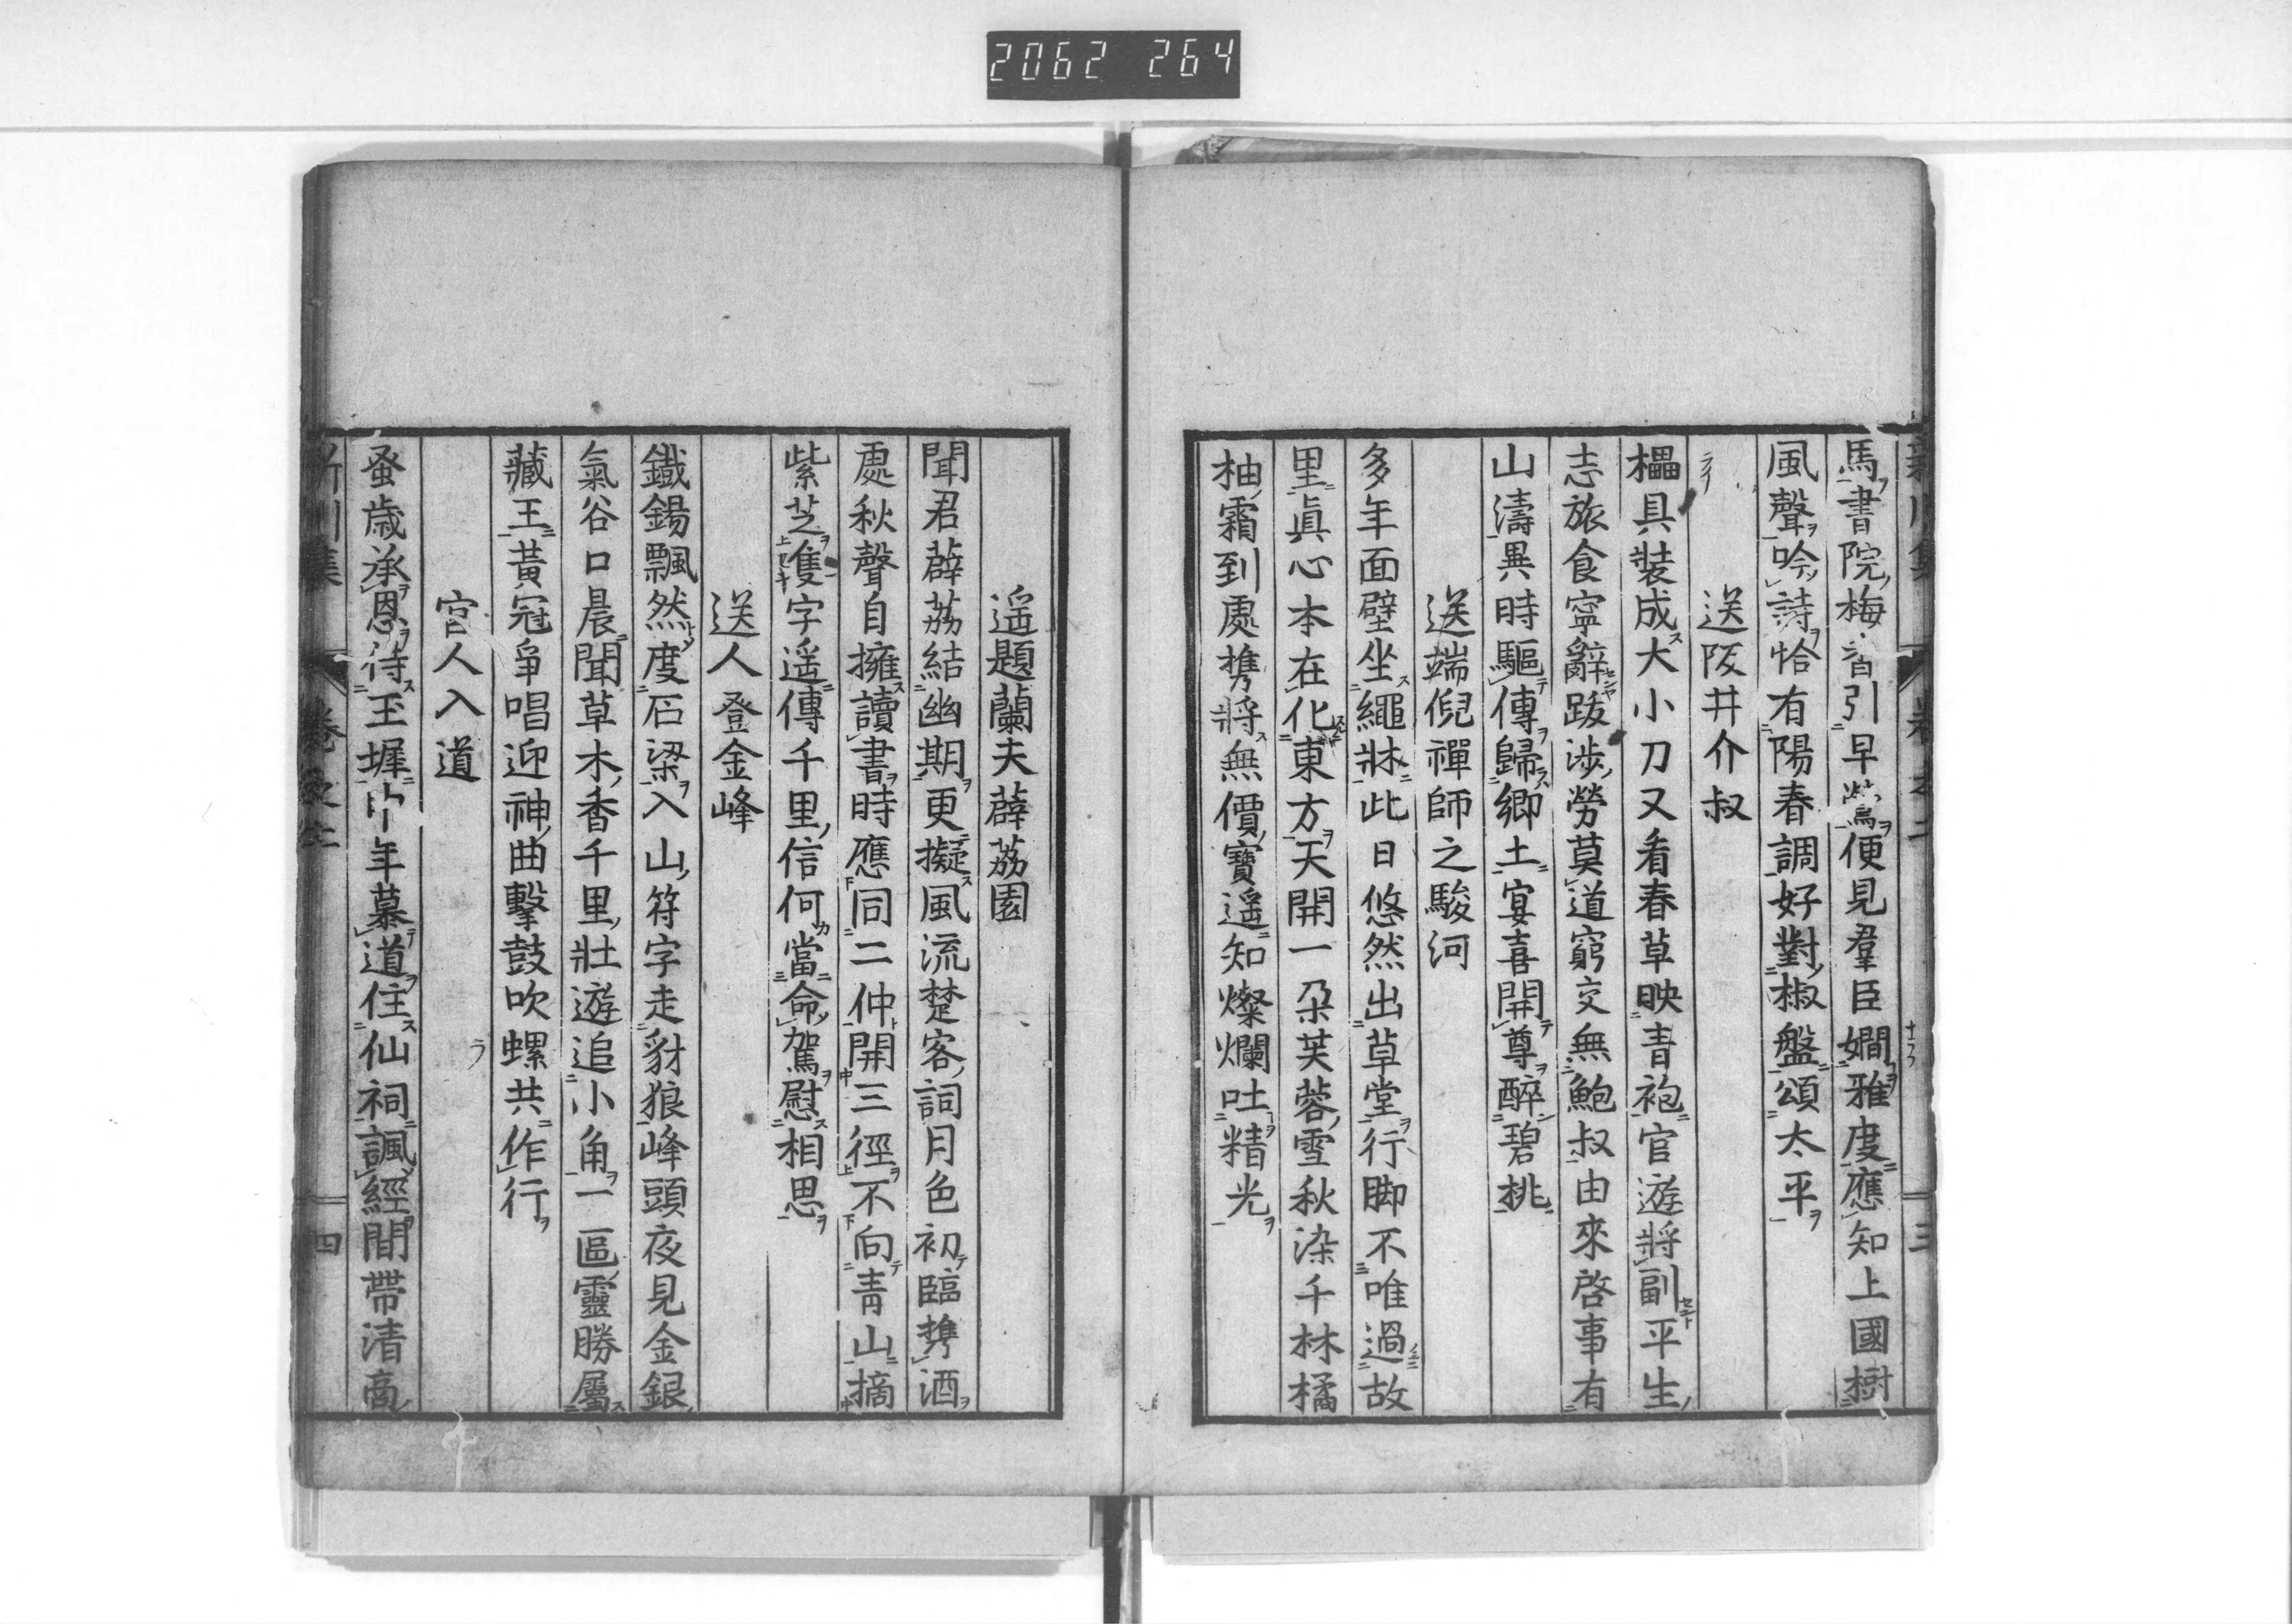 2062 264
馬書院梅香引早鶯便見羣臣嫺雅度應知上國樹
風聲吟詩恰有陽春調好對椒盤頌太平
送阪井介叔
櫑具裝成大小刀又看春草映青袍官遊將副平生
志旅食寧辭跋涉勞莫道窮交無鮑叔由來啓事有
山濤異時驅傳歸鄉土宴喜開尊醉碧桃
送端倪禪師之駿河
多年面壁坐繩牀此日悠然出草堂行脚不唯過故
里眞心本在化東方天開一朶芙蓉雪秋染千林橘
柚霜到處携將無價寶遥知燦爛吐精光
三
遥題蘭夫薜荔園
聞君薜荔結幽期更擬風流楚客詞月色初臨携酒
處秋聲自擁讀書時應同二仲開三徑不向青山摘
紫芝隻字遥傳千里信何當命駕慰相思
送人登金峰
鐵錫飄然度石梁入山符字走豺狼峰頭夜見金銀
氣谷口晨聞草木香千里壯遊追小角一區靈勝屬
藏王黃冠爭唱迎神曲擊鼓吹螺共作行
宮人入道
蚤歲承恩侍玉墀中年慕道住仙祠諷經間帶清商
四